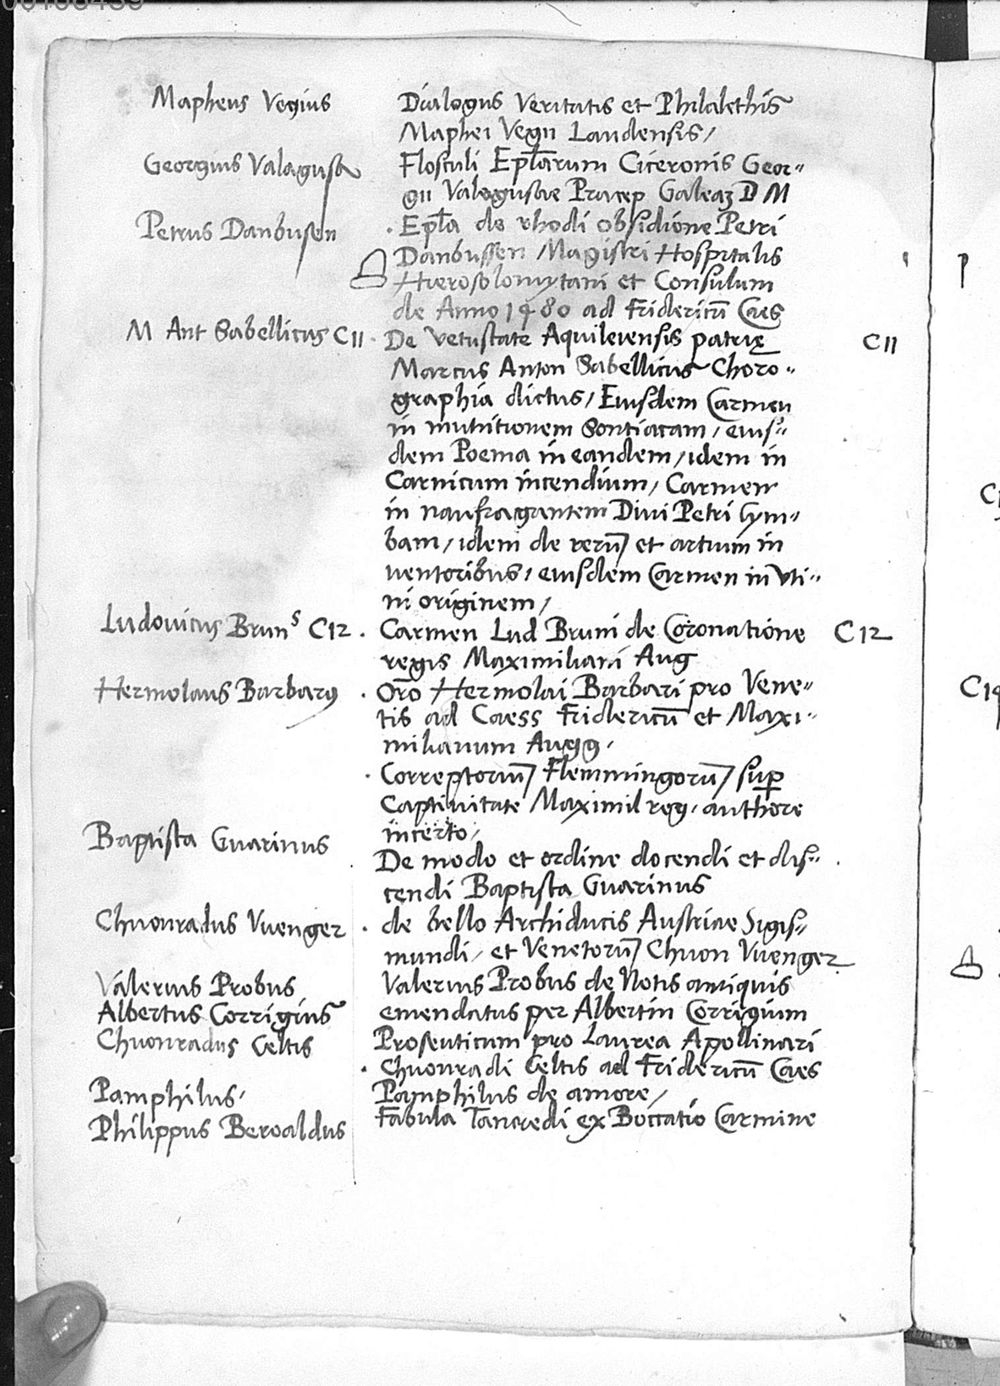 00106439
Mapheus Vegius Dialogus Veritatis et Philalethis
Maphei Vegii Laudensis /
Georgius Valagusa Flosculi Eplarum Ciceronis Geor-
gii Valegusae Praecep Galeaz D M
Petrus Danbusen . Epla de rhodi obsidione Petri
Danbussen Magistri Hospitalis
Hierosolomytani et Consulum
de Anno 1480 ad Fridericū Caes
M Ant Sabellicus C11 . De vetustate Aquileiensis patrię C11
Marcus Anton Sabellicus Choro-
graphia dictus / Eiusdem Carmen
in munitionem Sontiacam / eius-
dem Poema in eandem / idem in
Carnicum incendium / Carmen
in naufragantem Divi Petri Cym-
bam / idem de rerū et artium in
uentoribus / eiusdem Carmen in Vti-
ni originem /
Ludouicus Brunˢ C12 . Carmen Lud Bruni de Coronatione C12
regis Maximiliani Aug
Hermolaus Barbarus . Orō Hermolai Barbari pro Vene-
tis ad Caess Fridericū et Maxi-
milianum Augg /
. Correptoriū Flemmingorū sup
Captiuitate Maximil reg / authore
incerto /
Baptista Guarinus . De modo et ordine docendi et dis-
cendi Baptista Guarinus
Chuonradus Vuenger . de bello Archiducis Austriae Sigis-
mundi / et Venetorū Chuon Vuenger
Valerius Probus Valerius Probus de Notis antiquis
Albertus Corrigius emendatus per Albertin Corrigium
Chuonradus Celtis Proseuticum pro Laurea Apollinari
. Chuonradi Celtis ad Fridericū Caes
Pamphilus / Pamphilus de amore /
Philippus Beroaldus Fabula Tancredi ex Boccatio Carmine